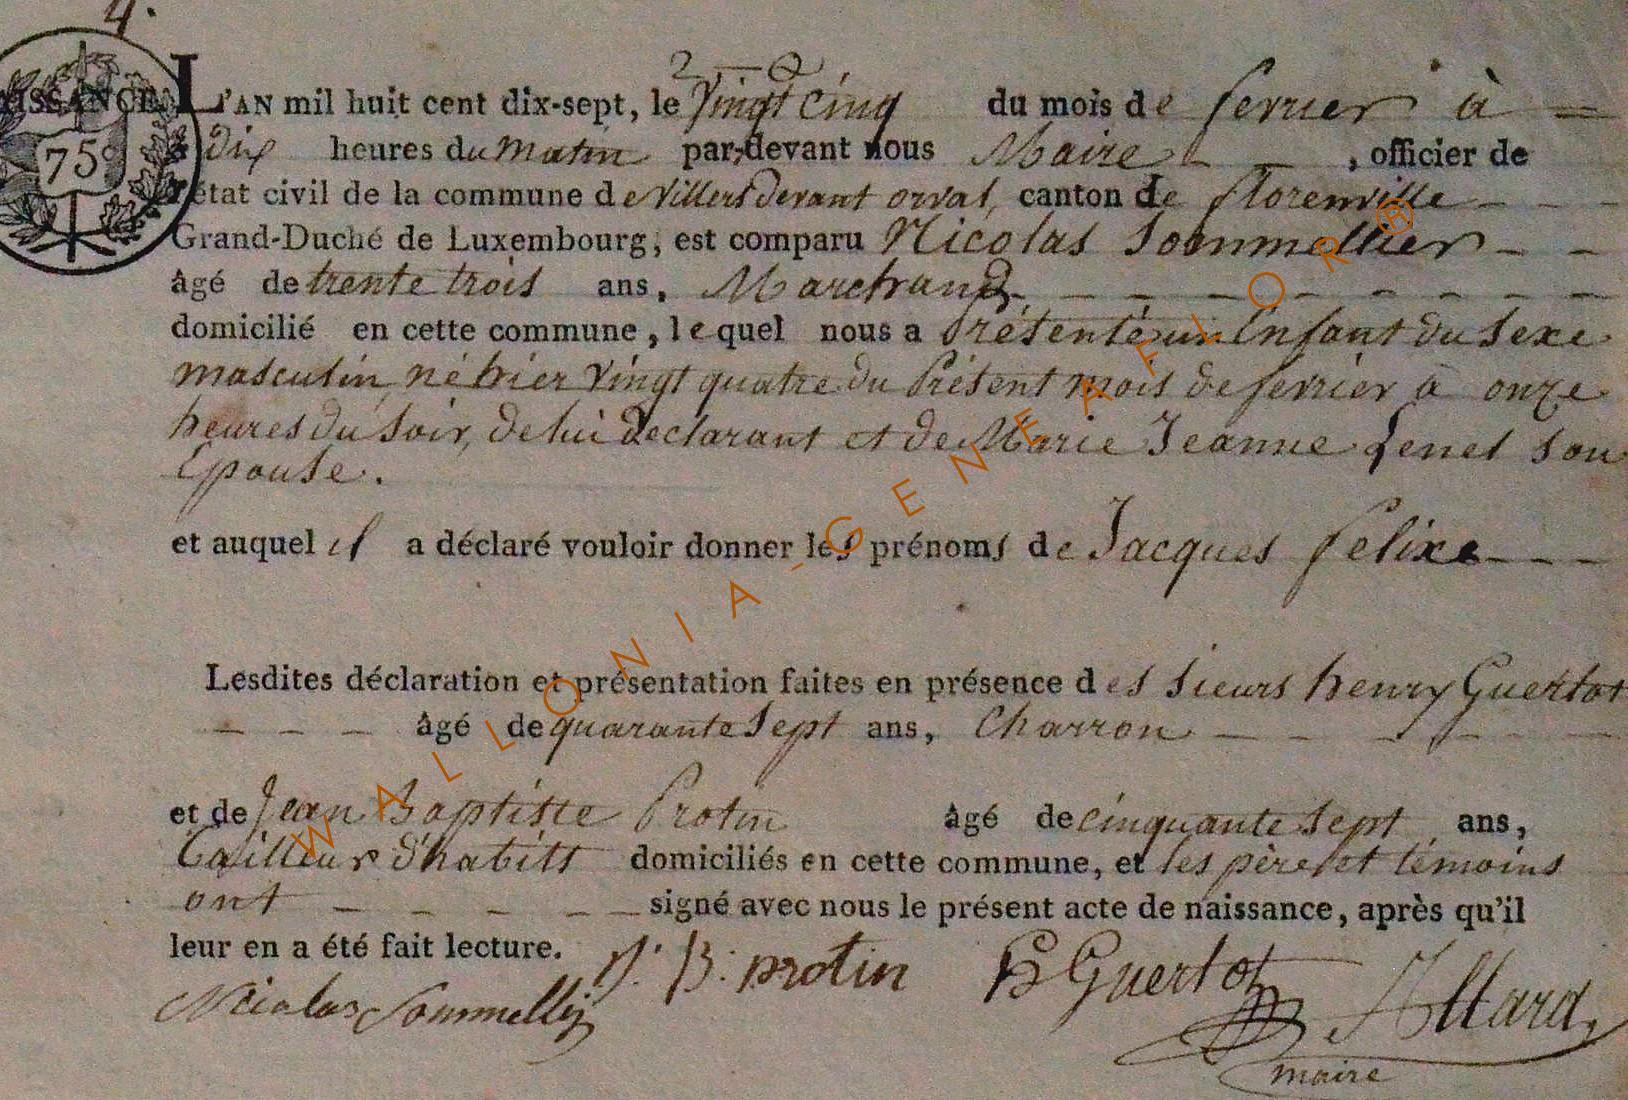 4.
NAISSANCE. L'AN mil huit cent dix-sept, le vingt cinq du mois de fevrier à
dix heures du matin par-devant nous Maire, officier de
l'état civil de la commune de Villers devant orval, canton de florenville
Grand-Duché de Luxembourg, est comparu Nicolas Sommellier
âgé de trente trois ans, Marchand
domicilié en cette commune, lequel nous a présenté un Enfant du sexe
masculin, né hier vingt quatre du présent mois de fevrier à onze
heures du soir, de lui declarant et de Marie Jeanne Lenel son
Epouse.
et auquel il a déclaré vouloir donner les prénoms de Jacques felixe
Lesdites déclaration et présentation faites en présence des sieurs henry Guertot
âgé de quarante sept ans, Charron
et de Jean Baptiste Protin âgé de cinquante sept ans,
Tailleur d'habits domiciliés en cette commune, et les père et témoins
ont signé avec nous le présent acte de naissance, après qu'il
leur en a été fait lecture.
J. B. protin
H Guertot
Nicolas Sommellier
Allard
maire
75c
WALLONIA-GENEAFLOR®